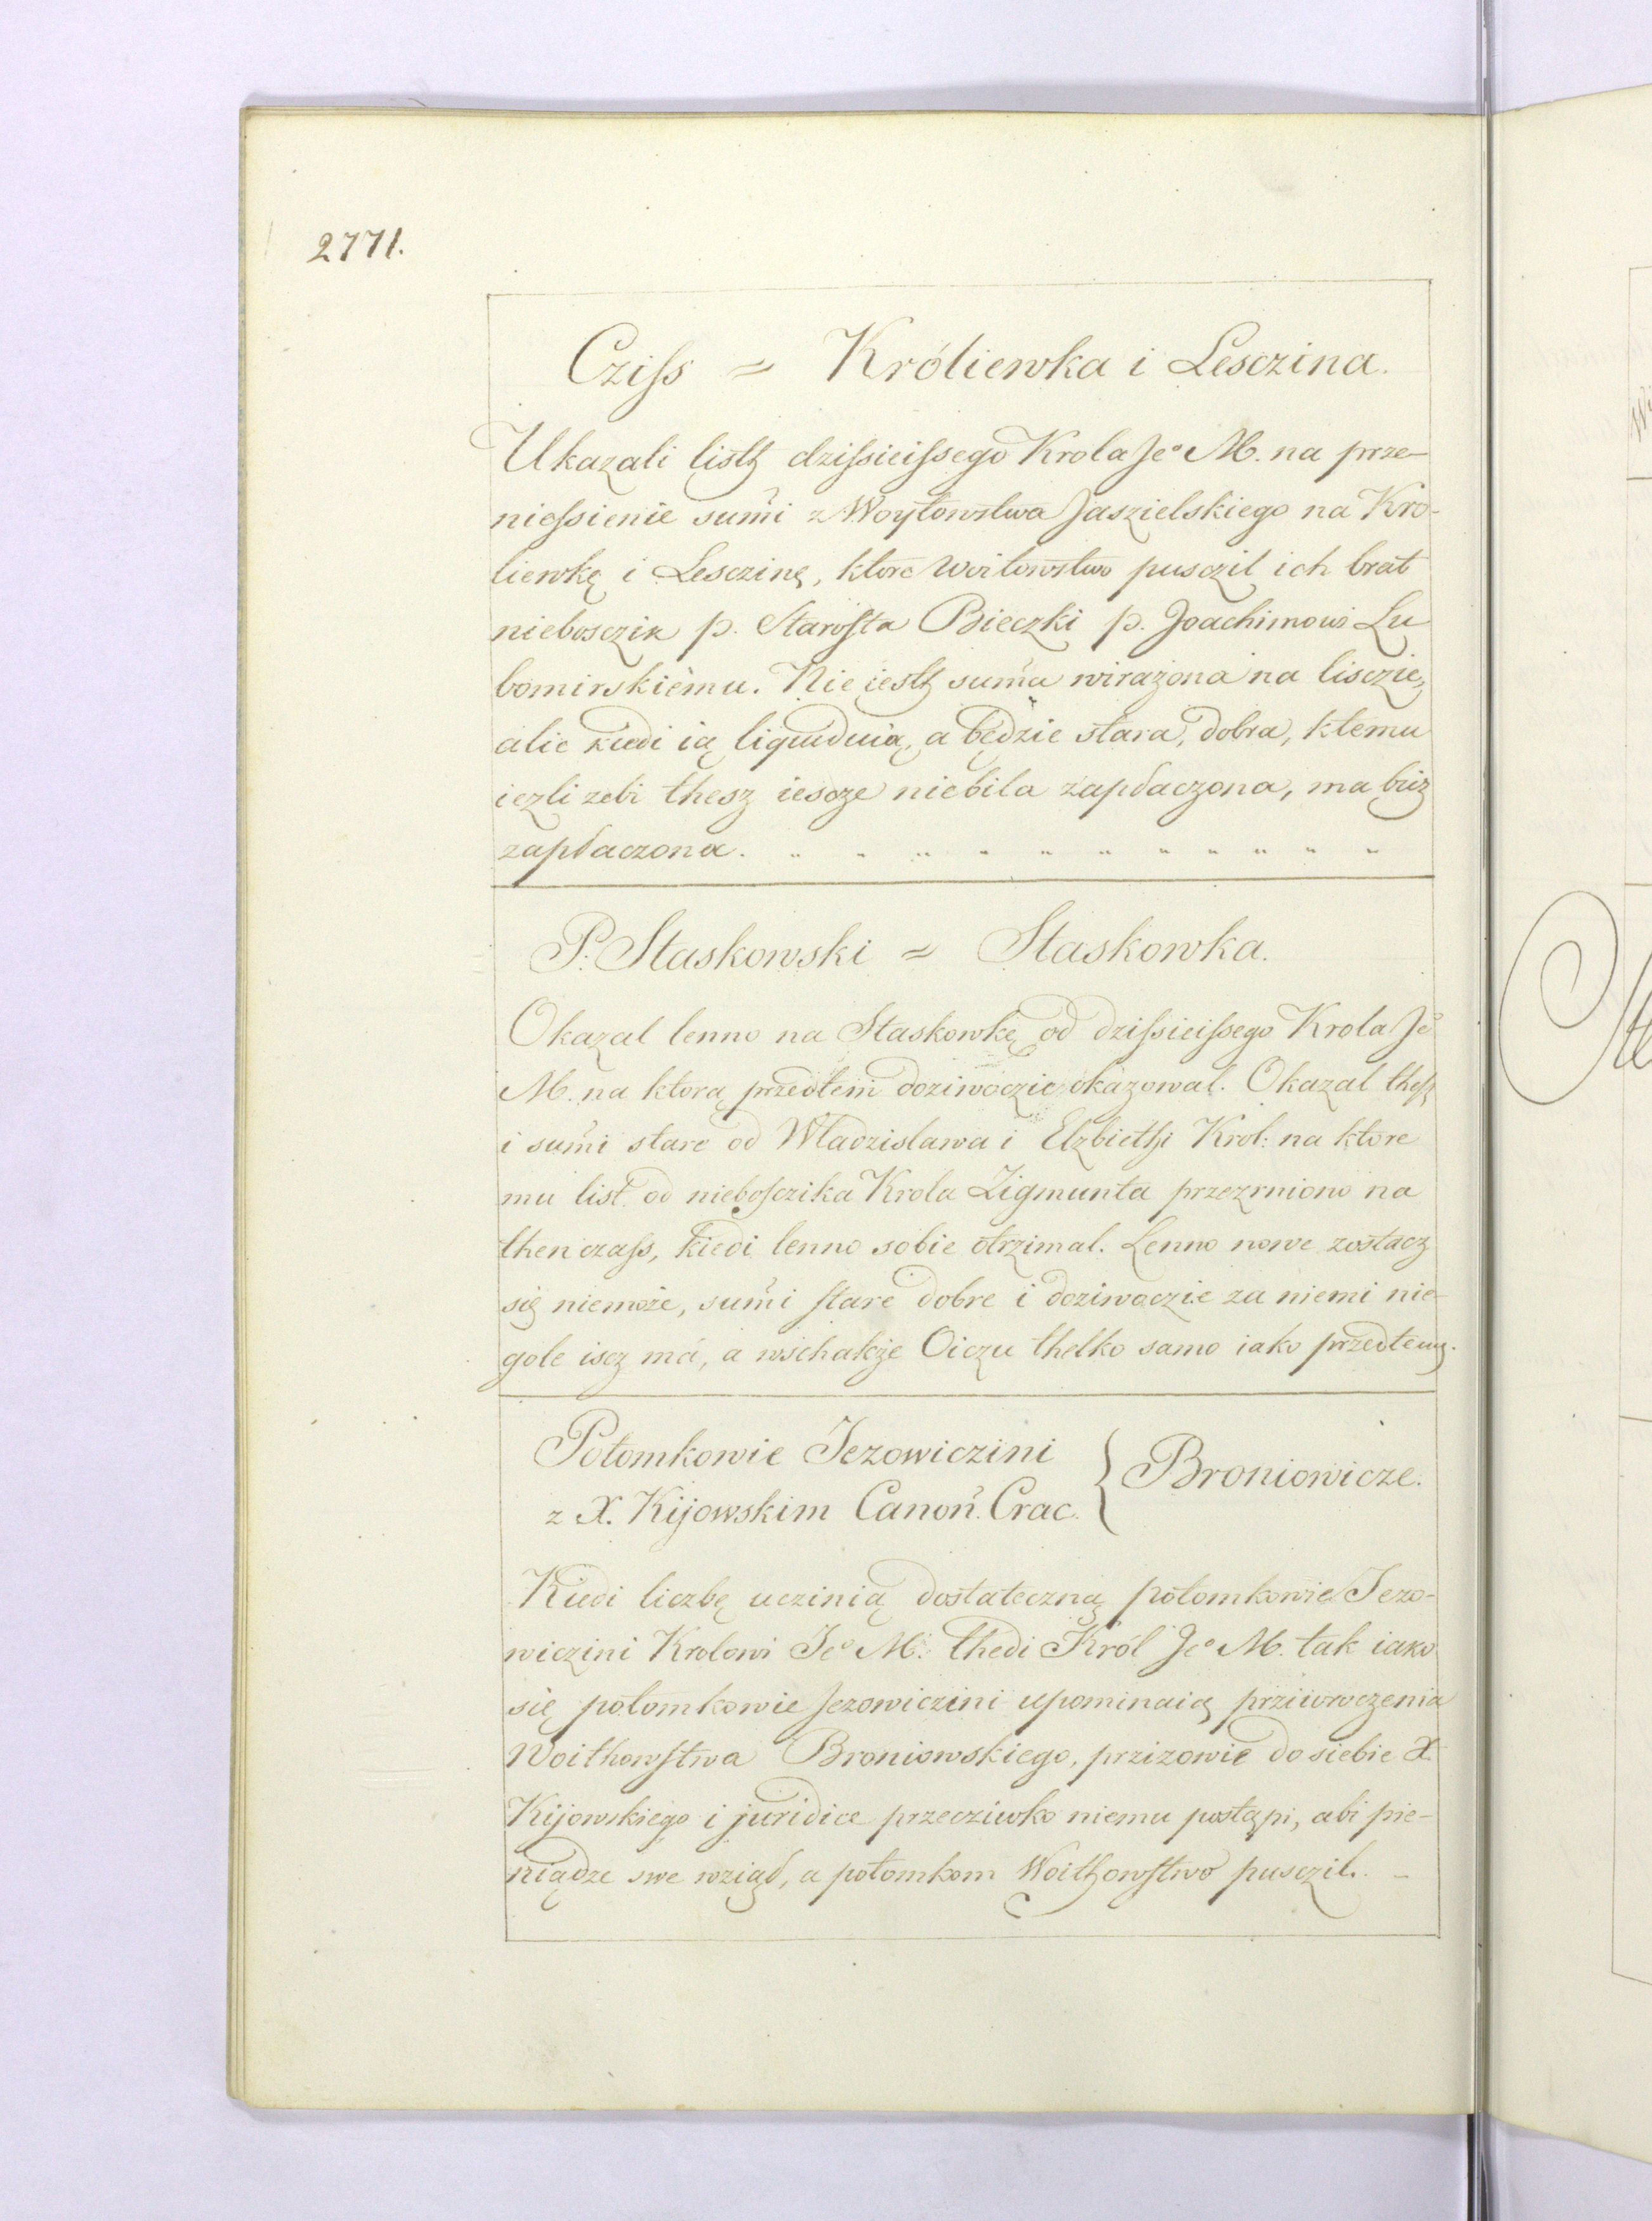 2771.
Cziss = Króliewka i Lesczina.
Ukazali listh dzissieissego Krola Jeº M. na prze-
niessienie sum̃i z Woytowstwa Jaszielskiego na Kro-
liewkę i Lesczinę, ktore woitowstwo pusczil ich brat
nieboszik p. Starosta Bieczki p. Joachimowi Lu
bomirskiemu. Nie iesth sum̃a wirażona na lisczie,
alie kiedi ią liquiduią, a będzie stara, dobra, ktemu
iezli zebi thesz iescze niebila zapłaczona, ma bicz
zapłaczona.
P. Staskowski = Staskowka.
Okazal lenno na Staskowkę od dzissieissego Krola Jeº
M. na ktorą przedtem doziwoczie okazowal. Okazal thesz
i sum̃i stare od Wladzislawa i Elzbiethi Krol: na ktore
mu list od nieboszczika Krola Zigmunta przezrniono na
then czass, kiedi lenno sobie otrzimal. Lenno nowe zostacz
się niemoże, sum̃i stare dobre i doziwoczie za niemi nie-
gole iscz má, a wschakże Oiczu thelko samo iako przedtem.
Potomkowie Jezowiczini
z X. Kijowskim Canoñ. Crac. } Broniowicze.
Kiedi liczbę uczinią dostateczną potomkowie Jezo-
wiczini Krolowi Jeº M. thedi Król Jeº M. tak iako
się potomkowie Jezowiczini upominaią prziwroczenia
Woithowstwa Broniowskiego, prizowie do siebie X
Kijowskiego i juridice przecziwko niemu postąpi, abi pie-
niądze swe wziął, a potomkom Woithowstwo pusczil. -